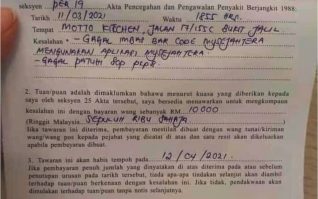 seksyen PER 19 Akta Pencegahan dan Pengawalan Penyakit Berjangkit 1988.
Tarikh 11/03/2021 Waktu 1855 HRS.
Tempat MOTTO KITCHEN, JALAN 17/155C BUKIT JALIL
Kesalahan * - GAGAL IMBAS BAR CODE MYSEJAHTERA
MENGGUNAKAN APLIKASI MYSEJAHTERA
- GAGAL PATUHI SOP PKPB
2. Tuan/puan adalah dimaklumkan bahawa menurut kuasa yang diberikan kepada
saya oleh seksyen 25 Akta tersebut, saya bersedia menawarkan untuk mengkompaun
kesalahan ini dengan bayaran wang sebanyak RM 10000
(Ringgit Malaysia SEPULUH RIBU SAHAJA)
Jika tawaran ini diterima, pembayaran mestilah dibuat dengan wang tunai/kiriman
wang/wang pos kepada pejabat yang dicatat di atas dan satu resit akan dikeluarkan
apabila pembayaran dibuat.
3. Tawaran ini akan habis tempoh pada 12/04/2021.
Jika pembayaran penuh jumlah yang dinyatakan di atas diterima pada atau sebelum
penutupan urusan pada tarikh tersebut, tiada apa-apa tindakan selanjut akan diambil
terhadap tuan/puan berkenaan dengan kesalahan ini. Jika tidak, pendakwaan akan
dimulakan terhadap tuan/puan tanpa notis selanjutnya.